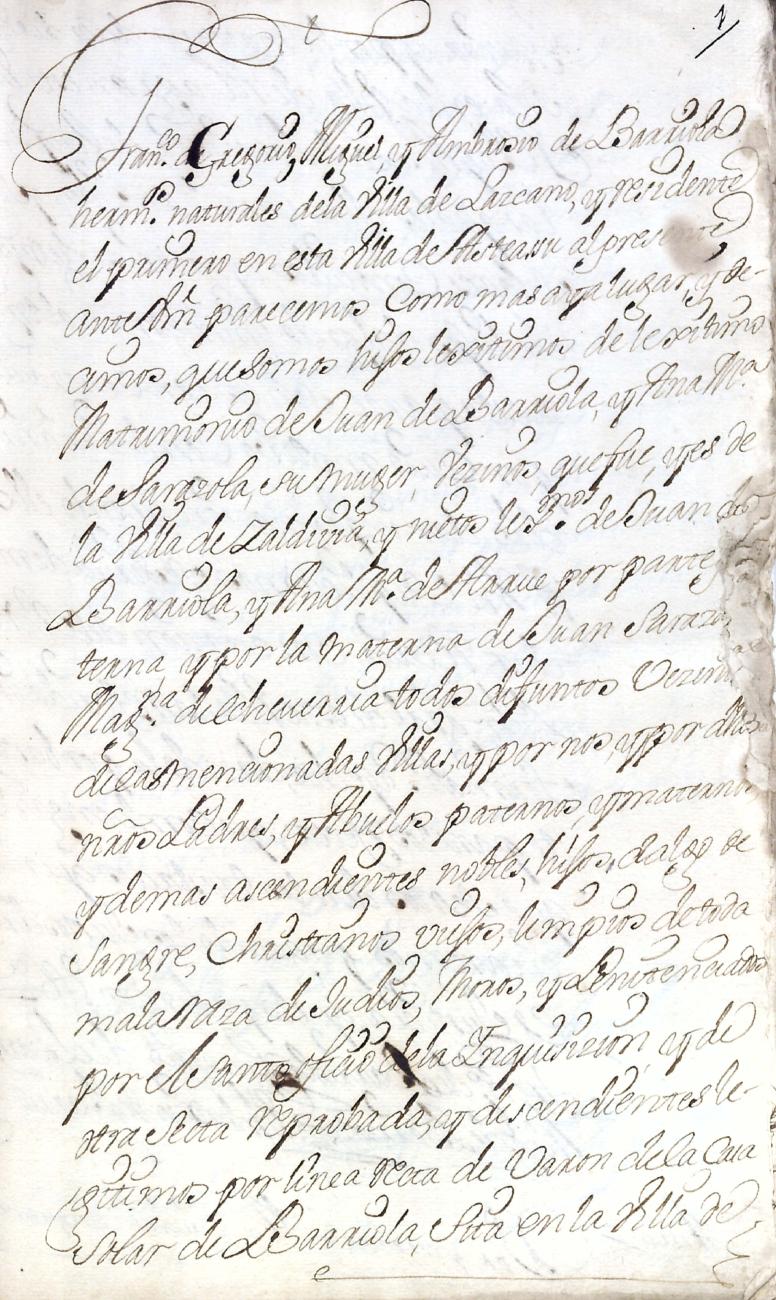 1
Fran.co de Gregorio, Miguel, y Ambrosio de Barriola
herm.s naturales dela Villa de Lazcano, y residente
el primero en esta Villa de Asteasu al presente
ante Vm parecemos Como mas aya lugar, y de-
cimos, que somos hijos lexitimos de lexitimo
Matrimonio de Juan de Barriola, y Ana M.a
de Sarazola, su muger, Vezinos, que fue, y es de
la Villa de Zaldivia, y nietos lex.mos de Juan de
Barriola, y Ana M.a de Arrue por parte
terna y por la materna de Juan Saraz
Mag.na de Echeverria todos difuntos Vezin
de las mencionadas Villas, y por nos, y por dhos
nros Padres, y Abuelos paternos, y materno
y demas ascendientes nobles, hijos, dalgo de
Sangre, Christianos viejos, limpios de toda
mala raza de Judios, Moros, y Penitenciados
por el Santo oficio de la Inquisizion, y de
otra Secta reprobada, y descendientes le-
gitimos por linea recta de Varon de la Casa
Solar de Barriola, Sita en la Villa de